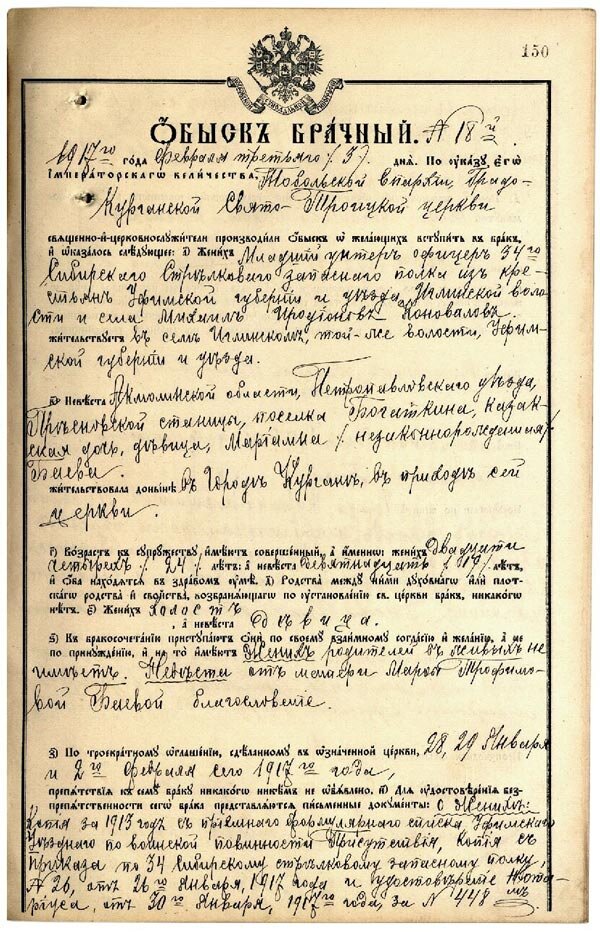 150
Обыскъ брачный. № 18й
1917го года Февраля третьяго /3/ дня. По указу Его
Императорскаго Величества, Тобольской Епархіи, Градо-
Курганской Свято-Троицкой церкви
священно-и-церковнослужители производили обыскъ о желающихъ вступить въ бракъ,
и оказалось слѣдующее: 1) Женихъ Младшій унтеръ офицеръ 34го
Сибирскаго Стрѣлковаго запаснаго полка изъ кре-
стьянъ Уфимской губерніи и уѣзда, Иглинской воло-
сти и села Михаилъ Иродіоновъ Коноваловъ.
жительствуетъ въ селѣ Иглинскомъ, той-же волости, Уфим-
ской губерніи и уѣзда.
2) Невѣста Акмолинской области, Петропавловскаго уѣзда,
Прѣсновской станицы, поселка Богаткина, казац-
кая дочь, дѣвица, Маріамна /незаконнорожденная/
Баева.
жительствовала донынѣ въ Городѣ Курганѣ, въ приходѣ сей
церкви.
3) Возрастъ къ супружеству имѣютъ совершенный, а именно: женихъ Двадцати
Четырехъ /24/ лѣтъ; а невѣста Девятнадцать /19/ лѣтъ,
и оба находятся въ здравомъ умѣ. 4) Родства между ними духовнаго или плот-
скаго родства и свойства, возбраняющаго по установленію св. церкви бракъ, никакого
нѣтъ. 5) Женихъ Холостъ
, а невѣста Дѣвица.
6) Къ бракосочетанію приступаютъ они по своему взаимному согласію и желанію, а не
по принужденію, и на то имѣютъ Женихъ родителей въ живыхъ не
имѣетъ. Невѣста отъ матери Марѳы Трофимо-
вой Баевой благословеніе.
7) По троекратному оглашенію, сдѣланному въ означенной церкви, 28, 29 Января
и 2го Февраля сего 1917го года,
препятствія къ сему браку никакого никѣмъ не объявлено. 8) Для удостовѣренія без-
препятственности сего брака представляются письменные документы: О Женихѣ:
за 1913 годъ съ пріемнаго формулярнаго списка, Уфимскаго
Уѣзднаго по воинской повинности Присутствія, копія съ
Приказа по 34 Сибирскому стрѣлковому запасному полку,
№ 26, отъ 26го Января, 1917 года и удостовѣреніе Нота-
ріуса, отъ 30го Января, 1917го года, за № 448